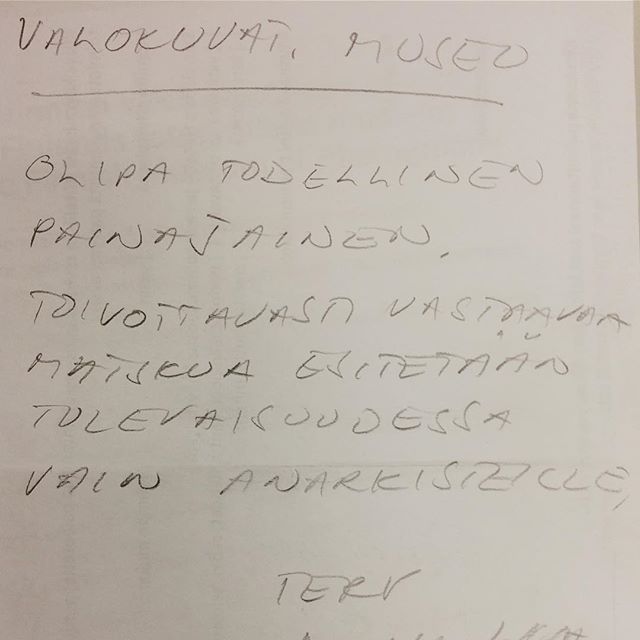 VALOKUVAT. MUSEO
OLIPA TODELLINEN
PAINAJAINEN.
TOIVOTTAVASTI VASTAAVAA
MATSKUA ESITETÄÄN
TULEVAISUUDESSA
VAIN ANARKISTEILLE,
TERV